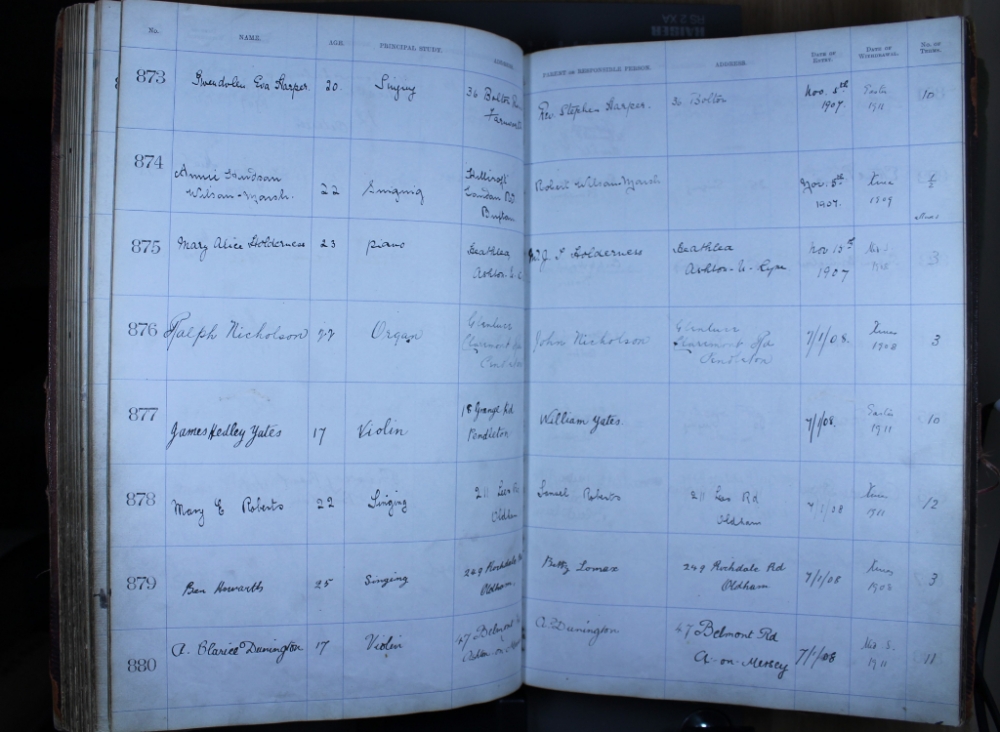 No. NAME. AGE. PRINCIPAL STUDY. PARENT OR RESPONSIBLE PERSON. ADDRESS. DATE OF ENTRY. DATE OF WITHDRAWAL. NO. OF TERMS.
873 Gwendolen Eva Harper. 20. Singing 36 Bolton Farnworth Rev. Stephen Harper. 36 Bolton Nov. 8th 1907. Easter 1911 10
874 Annie
Wilson-Marsh. 22 Singing Buxton Robert Wilson-Marsh Nov. 8th 1907. Xmas 1909
875 Mary Alice Holderness 23 piano Heathlea Ashton-U- J Holderness Heathlea Ashton-U-Lyne Nov 1907 3
876 Ralph Nicholson 22 Organ Glenluce Claremont John Nicholson Glenluce Claremont Rd Pendleton 7/1/08. Xmas 1908 3
877 James Hedley Yates 17 Violin 18 Grange Rd Pendleton William Yates. 7/1/08. Easter 1911 10
878 Mary E Roberts 22 Singing 211 Lees Oldham Samuel Roberts 211 Lees Rd Oldham 7/1/08 Xmas 1911 12
879 Ben Howarth 25 Singing 249 Rochdale Oldham. Betty Lomax 249 Rochdale Rd Oldham 7/1/08 Xmas 1908 3
880 A. Clarice Dunington 17 Violin 47 Belmont A. Dunington 47 Belmont Rd A-on-Mersey 7/1/08 Mid S. 1911 11